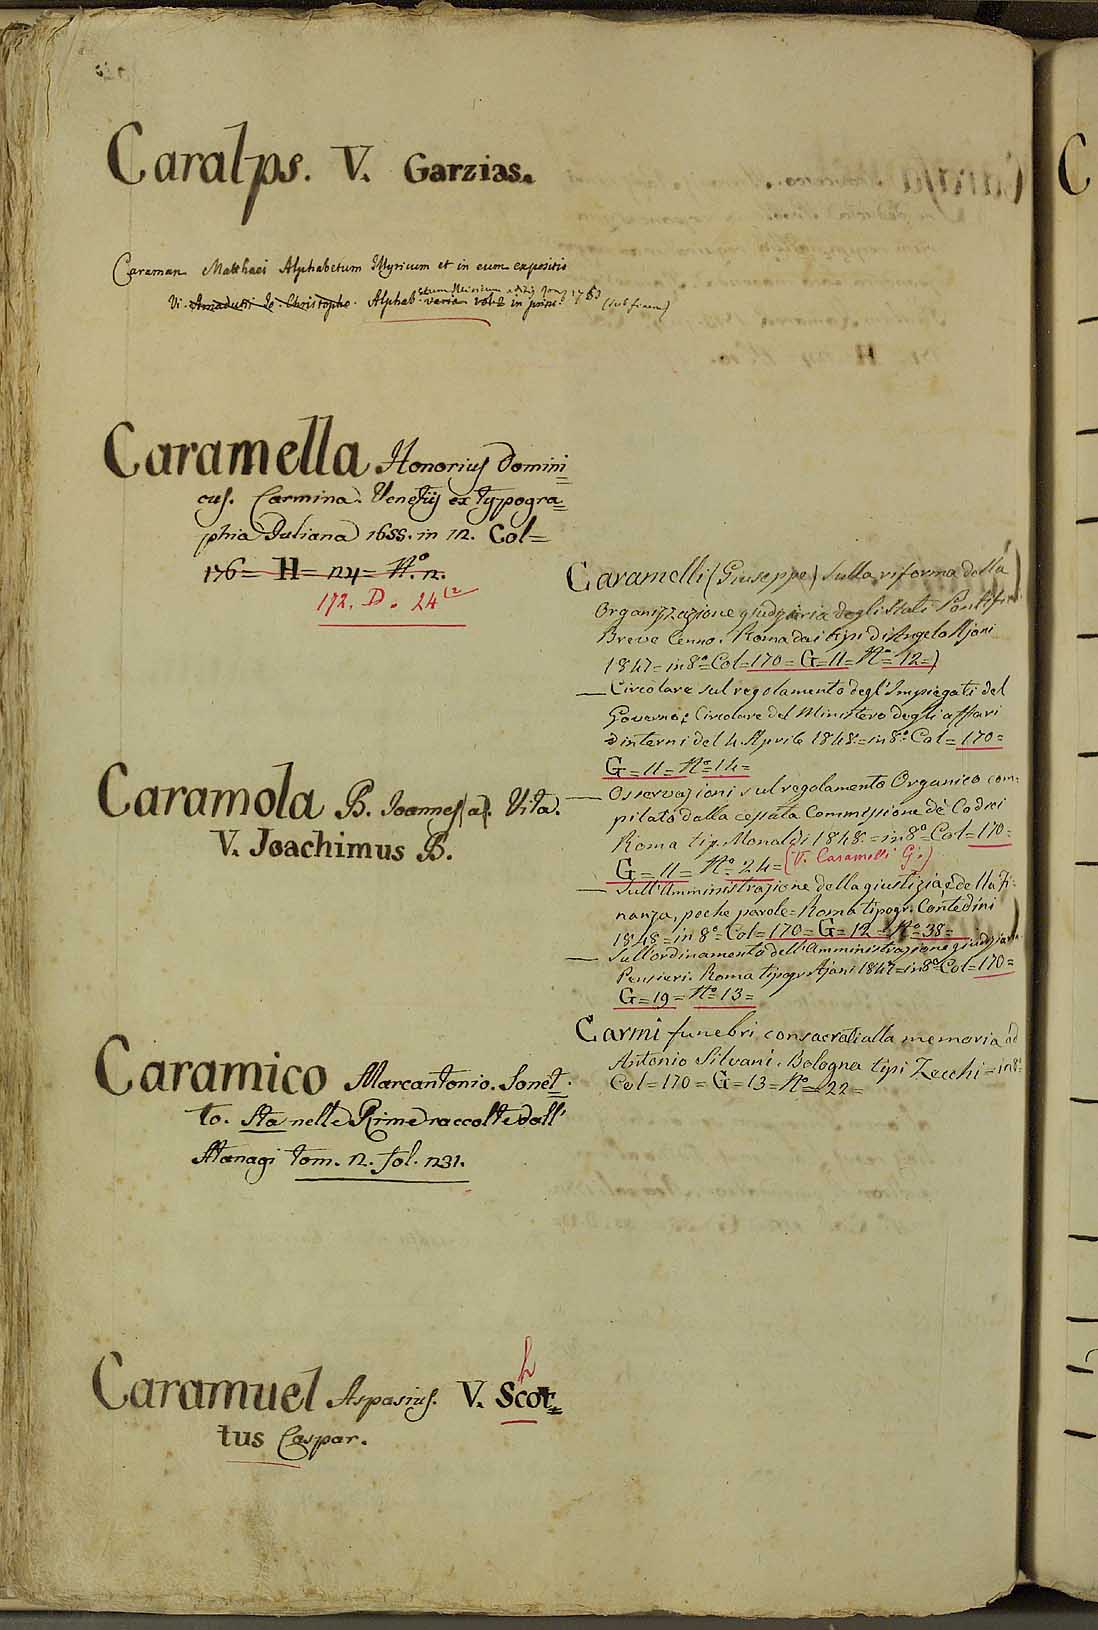 Caralps. V. Garzias.
Caraman Matthaei Alphabetum Illyricum et in eum expositio
Vi. Amadutii Jo. Christopho. Alphab. varia vol 2 in princ. 1753 (sub finem)
Caramella Honorius Domini=
cus. Carmina. Venetijs ex typogra=
phia Juliana 1655. in 12. Col=
176= H= 24= N.º 2.
172. D. 24
Caramola B. Joannes (a). Vita.
V. Joachimus B.
Caramico Marcantonio. Sonet=
to. Sta nelle Rime raccolte dall'
Atanagi tom. 2. fol. 231.
h
Caramuel Aspasius. V. Scot=
tus Caspar.
Caramelli (Giuseppe) Sulla riforma della
Organizzazione giudiziaria degli Stati Pontifici
Breve Cenno. Roma dai tipi di Angelo Ajani
1847= in 8º= Col=170= G=11= Nº=12=)
— Circolare sul regolamento degl'Impiegati del
Governo, e Circolare del Ministero degli affari
d'interni del 4. Aprile 1848.= in 8º Col= 170=
G=11= Nº=14=
— Osservazioni sul regolamento Organico com=
pilato dalla cessata Commissione de' Codici
Roma tip. Monaldi 1848.= in 8º Col=170=
G=11= Nº=24= (V. Caramelli G.)
— Sull'Amministrazione della giustizia, e della Fi=
nanza, poche parole= Roma tipogr. Contedini
1848= in 8º= Col=170= G=12= Nº=38=
— Sull'ordinamento dell'amministrazione giudiziaria
Pensieri. Roma tipogr Ajani 1847= in 8º Col=170=
G=19= Nº=13=
Carmi funebri consacrati alla memoria di
Antonio Silvani. Bologna tipi Zecchi= in 8º
Col=170= G=13= Nº=22=